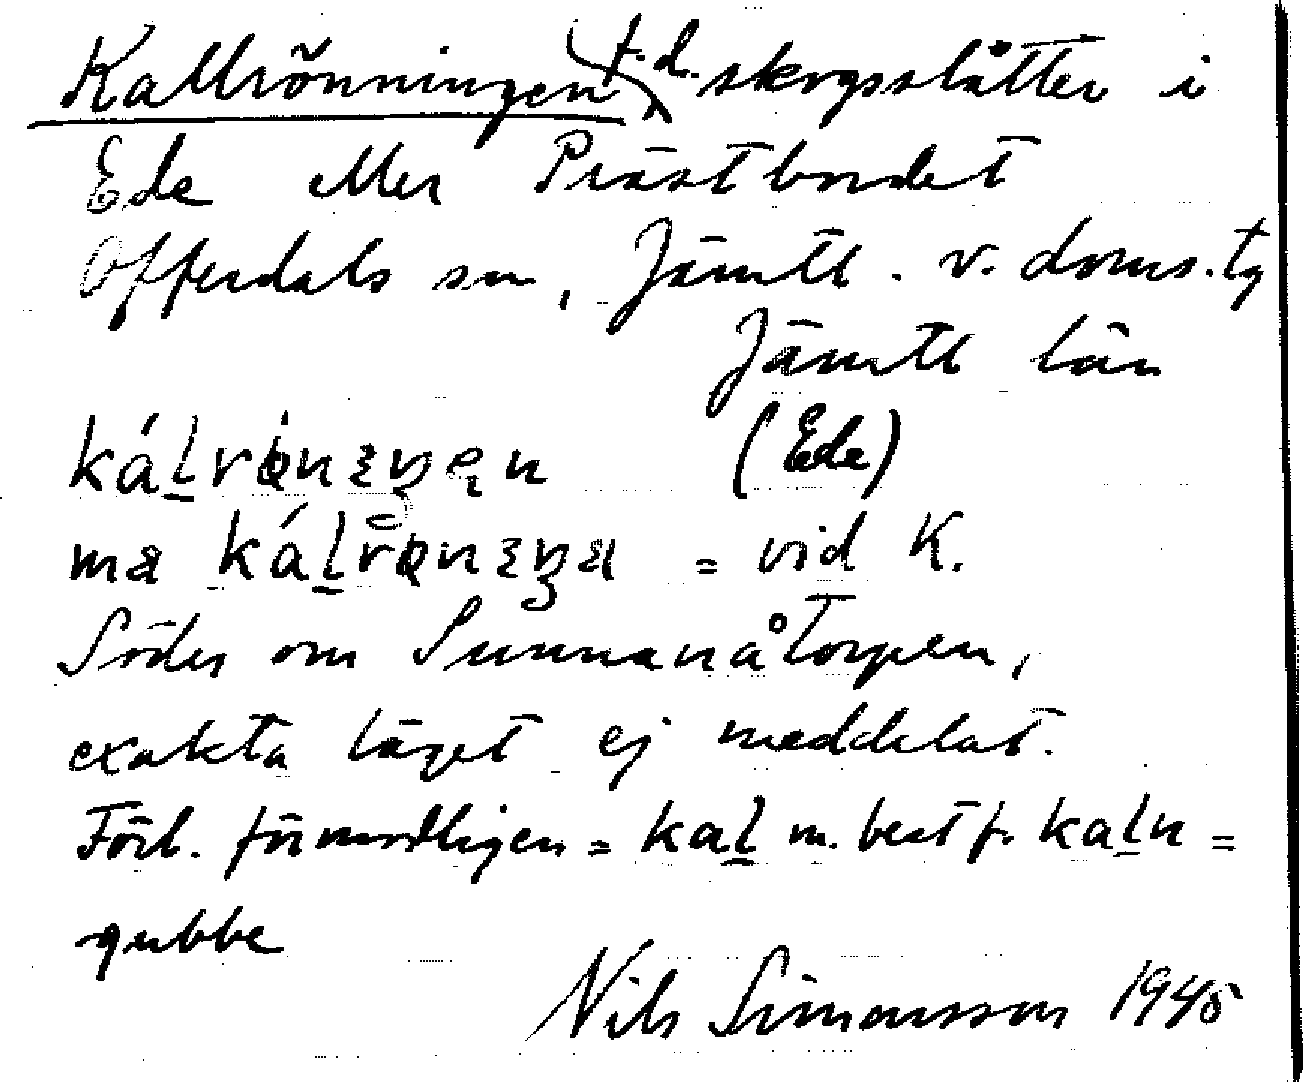 Kallrönningen, f.d. skogsslåtter i
Ede eller Prästbordet
Offerdals sn, Jämtl. v. doms.tg
Jämtl län
káḻrønıŋen (Ede)
ma káḻrønıŋa = vid K.
Söder om Sunnanåtorpen,
exakta läget ej meddelat.
Förl. förmodligen = kaḻ m. best f. kaḻn =
gubbe
Nils Simonsson 1945